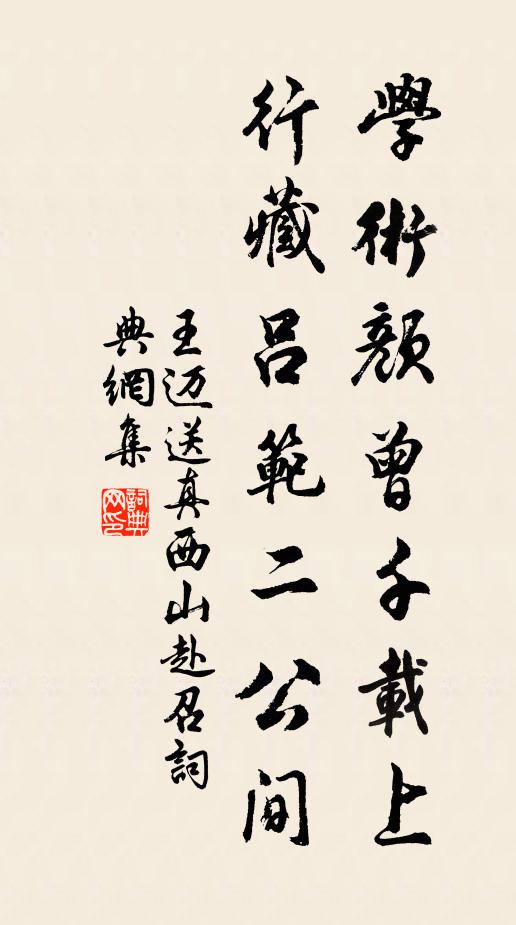 學術顔曾千載上
行藏吕範二公间
王迈送真西山赴召詞
典網集
詞典
网印